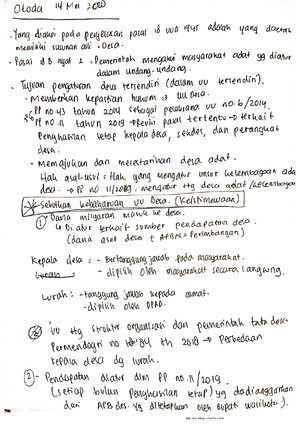 Otoda 14 Mei 2020
- Yang diakui pada penjelasan pasal 18 UUD 1945 adalah yang daerah
memiliki susunan asli - Desa.
- Pasal 18 B ayat 2. Pemerintah mengakui masyarakat adat yg diatur
dalam undang-undang.
- Tujuan pengaturan desa tersendiri (dalam UU tersendiri).
- Memberikan kepastian hukum → UU Desa.
PP no 43 tahun 2014 sebagai pelaksana UU no 6/2014.
PP no 11 tahun 2019 → Revisi pasal tertentu → terkait
Penghasilan tetap kepala desa, sekdes, dan perangkat
desa.
- Memajukan dan melestarikan desa adat.
Hak asal-usul: Hak yang mengatur unsur kelembagaan ada
desa. → PP no 11/2019: mengatur ttg desa adat/kelembagaan
Sebutkan kebaharuan UU Desa. (Keistimewaan)
① Dana milyaran masuk ke desa.
↳ Diatur terkait sumber pendapatan desa
(dana aset desa + APBN → Perimbangan)
Kepala desa: - Bertanggung jawab pada masyarakat.
- dipilih oleh masyarakat secara langsung.
Lurah: - tanggung jawab kepada camat.
- dipilih oleh
UU ttg struktur organisasi dan pemerintah tata desa
Permendagri no 84 th 2015 → Perbedaan
kepala desa dg lurah.
② - Pendapatan diatur dlm PP no 11/2019
(setiap bulan Penghasilan tetap) yg dianggarkan
dari APB des. yg ditetapkan oleh bupati walikota).